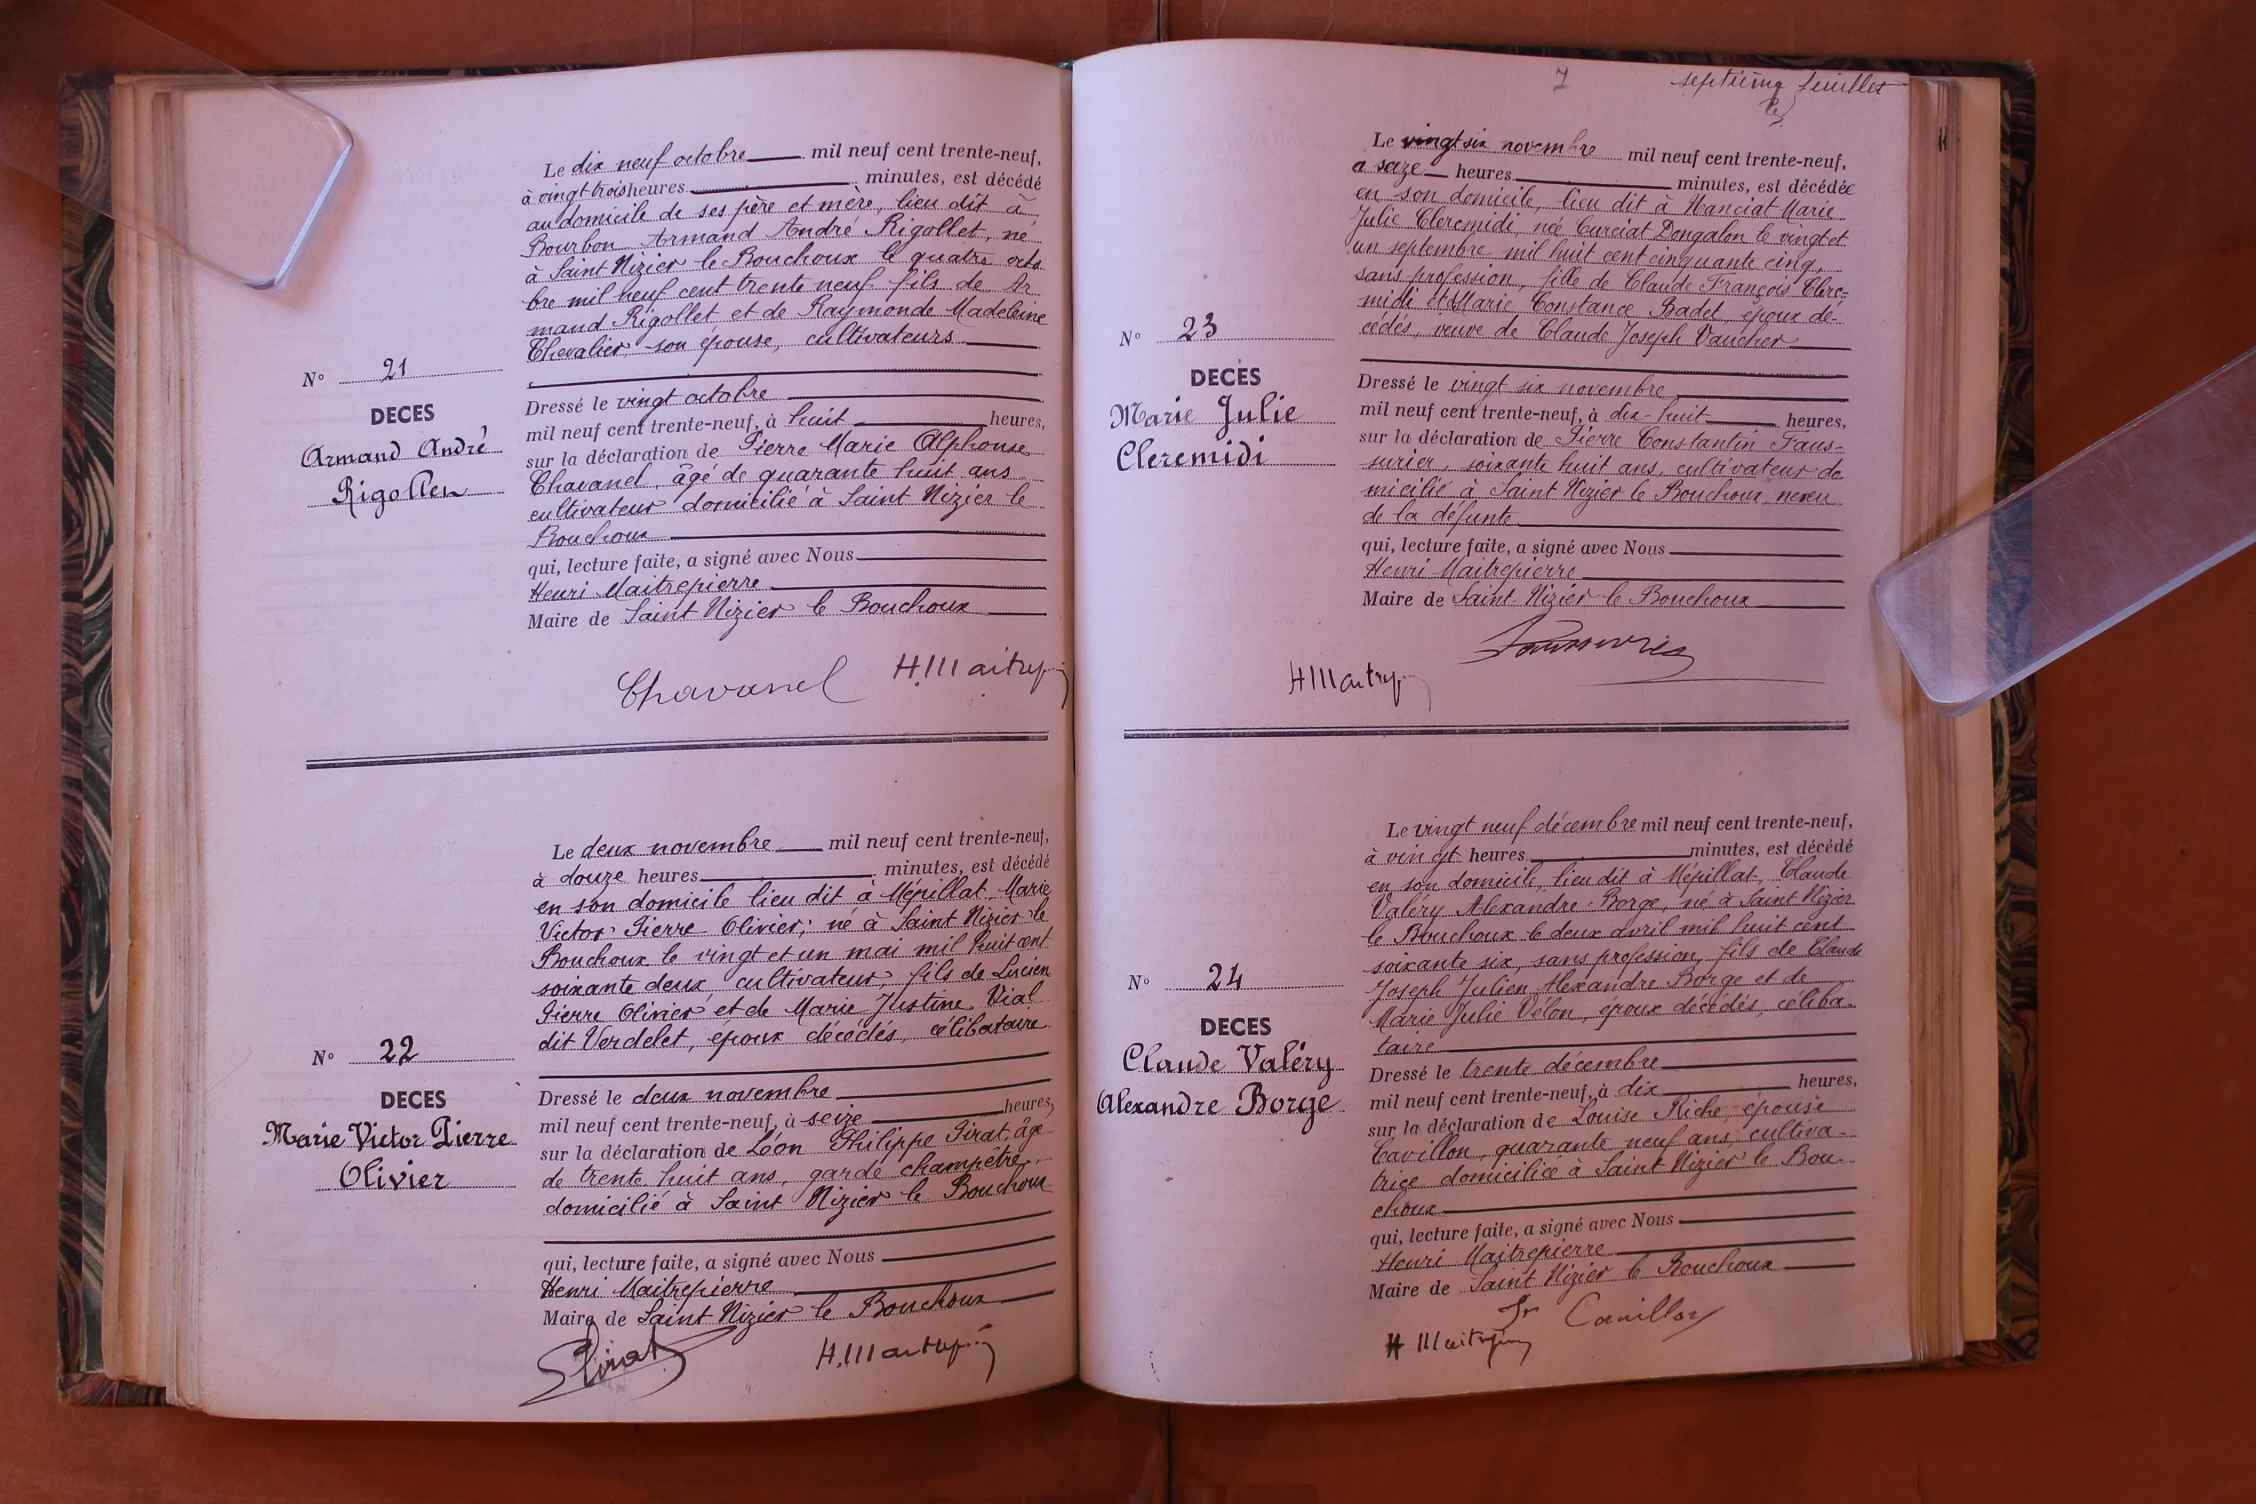 Le dix neuf octobre mil neuf cent trente-neuf,
à vingt trois heures minutes, est décédé
au domicile de ses père et mère, lieu dit à
Bourbon Armand André Rigollet, né
à Saint Nizier le Bouchoux le quatre octo
bre mil neuf cent trente neuf fils de Ar
mand Rigollet et de Raymonde Madeleine
Chevalier, son épouse, cultivateurs
N° 21
DECES
Armand André
Rigollet
Dressé le vingt octobre
mil neuf cent trente-neuf, à huit heures,
sur la déclaration de Pierre Marie Alphonse
Chavanel, âgé de quarante huit ans
cultivateur domicilié à Saint Nizier le
Bouchoux
qui, lecture faite, a signé avec Nous
Henri Maitrepierre
Maire de Saint Nizier le Bouchoux
Chavanel H.Maitrep
Le deux novembre mil neuf cent trente-neuf,
à douze heures minutes, est décédé
en son domicile lieu dit à Mépillat Marie
Victor Pierre Olivier, né à Saint Nizier le
Bouchoux le vingt et un mai mil huit cent
soixante deux cultivateur, fils de Lucien
Pierre Olivier et de Marie Justine Vial
dit Verdelet, époux décédés, célibataire
N° 22
DECES
Marie Victor Pierre
Olivier
Dressé le deux novembre
mil neuf cent trente-neuf, à seize heures,
sur la déclaration de Léon Philippe Pirat, âgé
de trente huit ans, garde champêtre
domicilié à Saint Nizier le Bouchoux
qui, lecture faite, a signé avec Nous
Henri Maitrepierre
Maire de Saint Nizier le Bouchoux
Pirat H.Maitrep
7 septième feuillet
Le vingt six novembre mil neuf cent trente-neuf,
à seize heures minutes, est décédée
en son domicile, lieu dit à Hanciat Marie
Julie Cleremidi, née Curciat Dongalon le vingt et
un septembre mil huit cent cinquante cinq,
sans profession, fille de Claude François Clere-
midi et Marie Constance Badet, époux dé-
cédés, veuve de Claude Joseph Vaucher
N° 23
DECES
Marie Julie
Cleremidi
Dressé le vingt six novembre
mil neuf cent trente-neuf, à dix-huit heures,
sur la déclaration de Pierre Constantin Faus-
surier, soixante huit ans, cultivateur do
micilié à Saint Nizier le Bouchoux, neveu
de la défunte
qui, lecture faite, a signé avec Nous
Henri Maitrepierre
Maire de Saint Nizier le Bouchoux
Faussurier
H Maitrep
Le vingt neuf décembre mil neuf cent trente-neuf,
à vingt heures minutes, est décédé
en son domicile, lieu dit à Mépillat, Claude
Valéry Alexandre Borge, né à Saint Nizier
le Bouchoux le deux avril mil huit cent
soixante six, sans profession, fils de Claude
Joseph Julien Alexandre Borge et de
Marie Julie Vélon, époux décédés, céliba-
taire
N° 24
DECES
Claude Valéry
Alexandre Borge
Dressé le trente décembre
mil neuf cent trente-neuf, à dix heures,
sur la déclaration de Louise Riche, épouse
Cavillon, quarante neuf ans, cultiva-
trice domiciliée à Saint Nizier le Bou
choux
qui, lecture faite, a signé avec Nous
Henri Maitrepierre
Maire de Saint Nizier le Bouchoux
Cavillon
H Maitrep